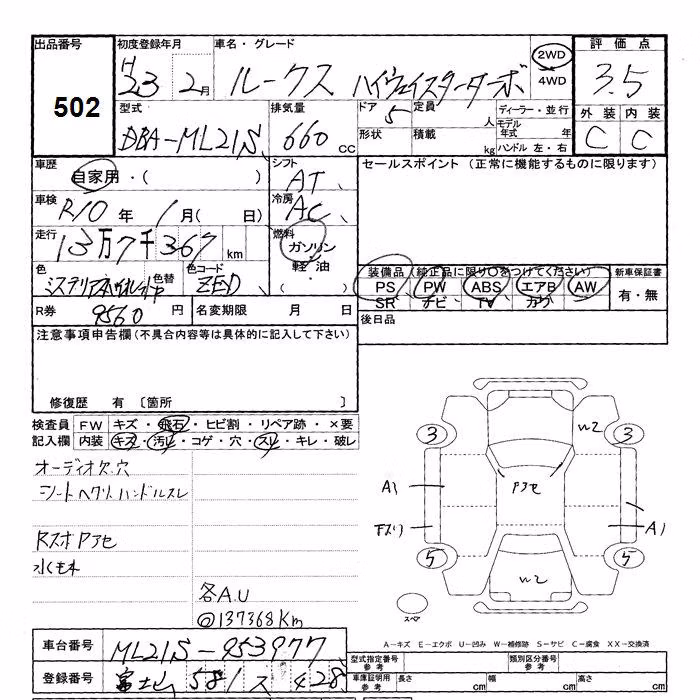 出品番号 初度登録年月 車名・グレード 評価点
502
H23 2月 ルークス ハイウェイスターターボ 2WD 4WD 3.5
型式 排気量 ドア 定員 ディーラー・並行 外装 内装
DBA-ML21S 660 CC 5 人 モデル年式 年 C C
形状 積載 kg ハンドル 左・右
車歴 シフト セールスポイント (正常に機能するものに限ります)
自家用・( ) AT
車検 冷房
R10年 1月( 日) AC
走行 燃料
13万7千367km ガソリン
軽・油
( )
色 色替 色コード 装備品 (純正品に限り○をつけてください) 新車保証書
ZED PS PW ABS エアB AW 有・無
SR ナビ TV カワ
R券 9560円 名変期限 月 日 後日品
注意事項申告欄(不具合内容等は具体的に記入して下さい)
修復歴 有 〔箇所 〕
検査員 FW キズ・飛石・ヒビ割・リペア跡・×要
記入欄 内装 キズ・汚レ・コゲ・穴・スレ・キレ・破レ
オーディオ欠.穴
シートヘタリ ハンドルスレ
Rスポ Pアセ
水くもれ
各A.U
◎137368Km
3 W2 3
A1 Pアセ
下スリ A1
5 W2 5
スペア
A-キズ E-エクボ U-凹み W-補修跡 S-サビ C-腐食 XX-交換済
車台番号 ML21S-953977
登録番号 富士山 581 ス 428
型式指定番号 参考 類別区分番号 参考
車庫証明用 参考 長さ cm 幅 cm 高さ cm